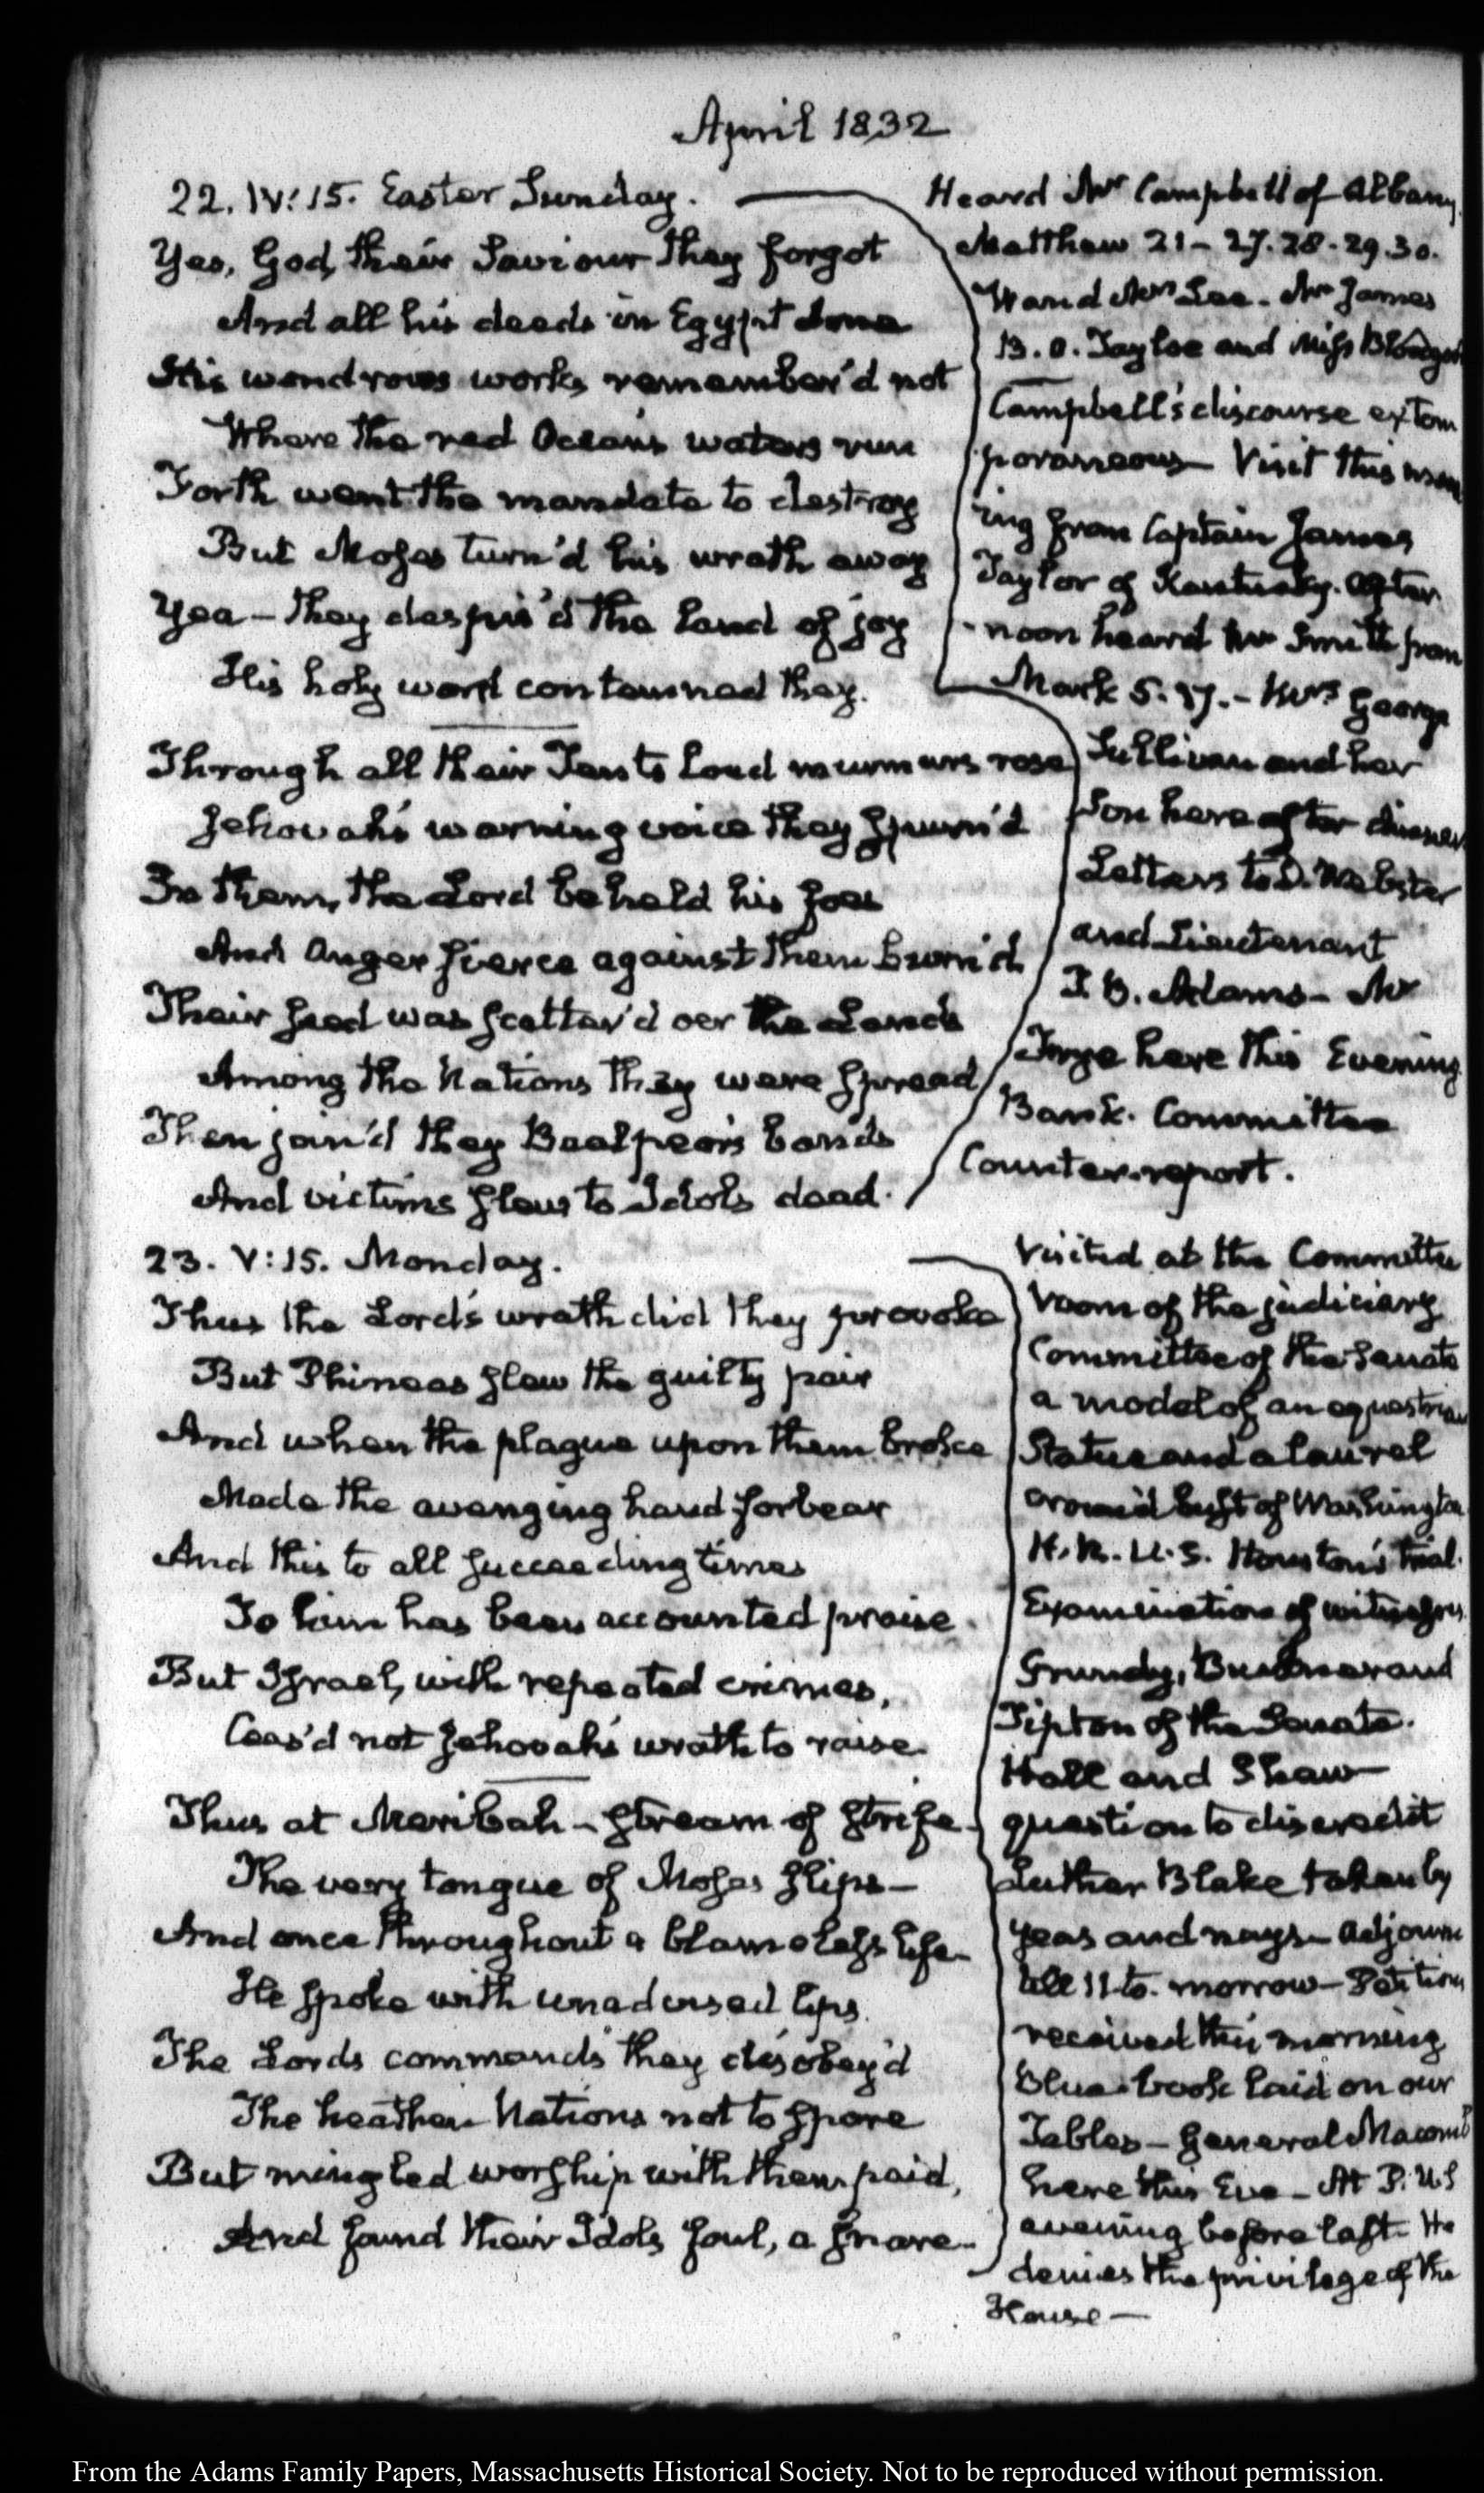 April 1832
22. IV:15. Easter Sunday.
Yes, God, their Saviour they forgot
And all his deeds in Egypt done
His wondrous works remember'd not
Where the red Ocean's waters run
Forth went the mandate to destroy
But Moses turn'd his wrath away
Yea - they despis'd the land of joy
His holy word contemned they.
Through all their Tents loud murmurs rose
Jehovah's warning voice they spurn'd
In them, the Lord beheld his foes
And Anger fierce against them burn'd
Their seed was scatter'd oer the Lands
Among the Nations they were spread
Then join'd they Baalpeor's bands
And victims slew to Idols dead.
Heard Mr Campbell of Albany.
Matthew 21 - 27. 28. 29. 30.
W and Mrs Lee - Mr James
B. O. Tayloe and Miss
Campbell's discourse extem
poraneous - Visit this morn
ing from Captain James
Taylor of Kentucky. After
noon heard Mr Smith from
Mark 5. 17. - Mrs George
Sullivan and her
Son here after dinner
Letters to D. Webster
and Lieutenant
J. B. Adams - Mr
Frye here this Evening
Bank. Committee
Counter-report.
23. V:15. Monday.
Thus the Lord's wrath did they provoke
But Phineas slew the guilty pair
And when the plague upon them broke
Made the avenging hand forbear
And this to all succeeding times
To him has been accounted praise.
But Israel, with repeated crimes,
Ceas'd not Jehovah's wrath to raise.
Thus at Meribah - stream of strife -
The very tongue of Moses slips -
And once throughout a blameless life -
He spoke with unadvised lips.
The Lords commands they disobey'd
The heathen Nations not to spare
But mingled worship with them paid,
And found their Idols foul, a snare -
Visited at the Committee
room of the judiciary
Committee of the Senate
a model of an equestrian
Statue and a laurel
crown'd bust of Washington
H. R. U. S. Houston's trial.
Examination of witnesses
Grundy, Buckner and
Tipton of the Senate.
Hall and Shaw
question to discredit
Luther Blake taken by
yeas and nays - adjourn
till 11 to-morrow - Petition
received this morning
Blue-book laid on our
Tables - General Macomb
here this Eve - At P. U S
evening before last. He
denies the privilege of the
House -
From the Adams Family Papers, Massachusetts Historical Society. Not to be reproduced without permission.